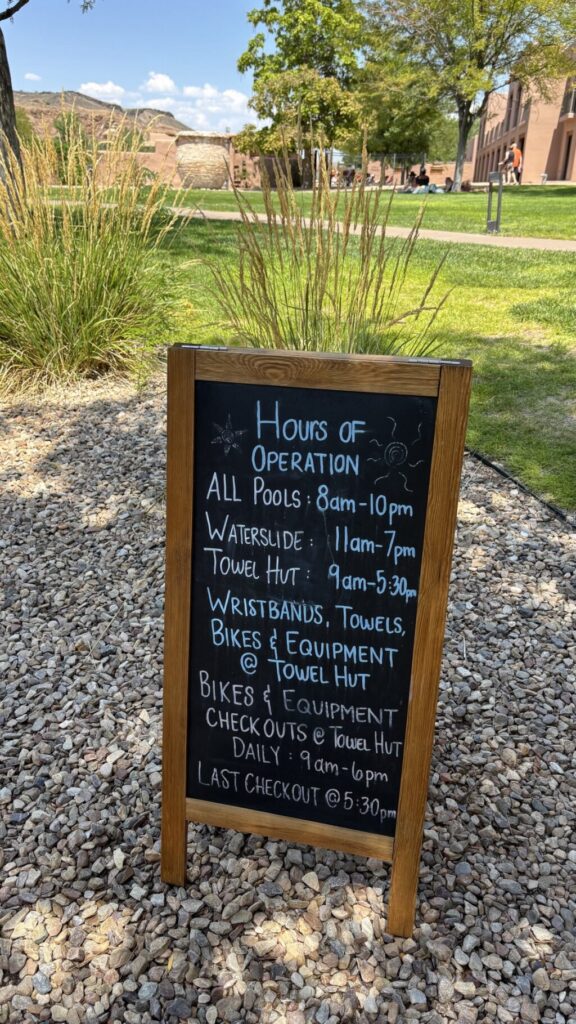 Hours of
Operation
All Pools : 8am-10pm
Waterslide : 11am-7pm
Towel Hut : 9am-5:30pm
Wristbands, Towels,
Bikes & Equipment
@ Towel Hut
Bikes & Equipment
Checkouts @ Towel Hut
Daily : 9am-6pm
Last Checkout @ 5:30pm